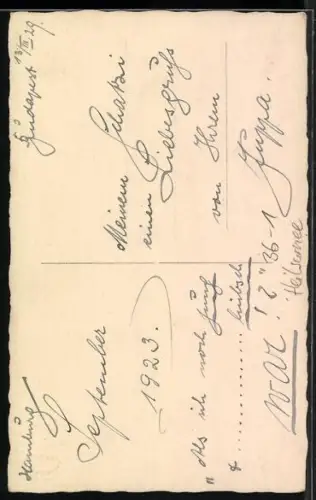 Hamburg
September
1923.
"Als ich noch jung
& ........... hübsch
war! 2" 36-1
Heilsarmee
Budapest 13/III 29.
Meinem Schatzi
einen Liebesgruß
von Ihrem